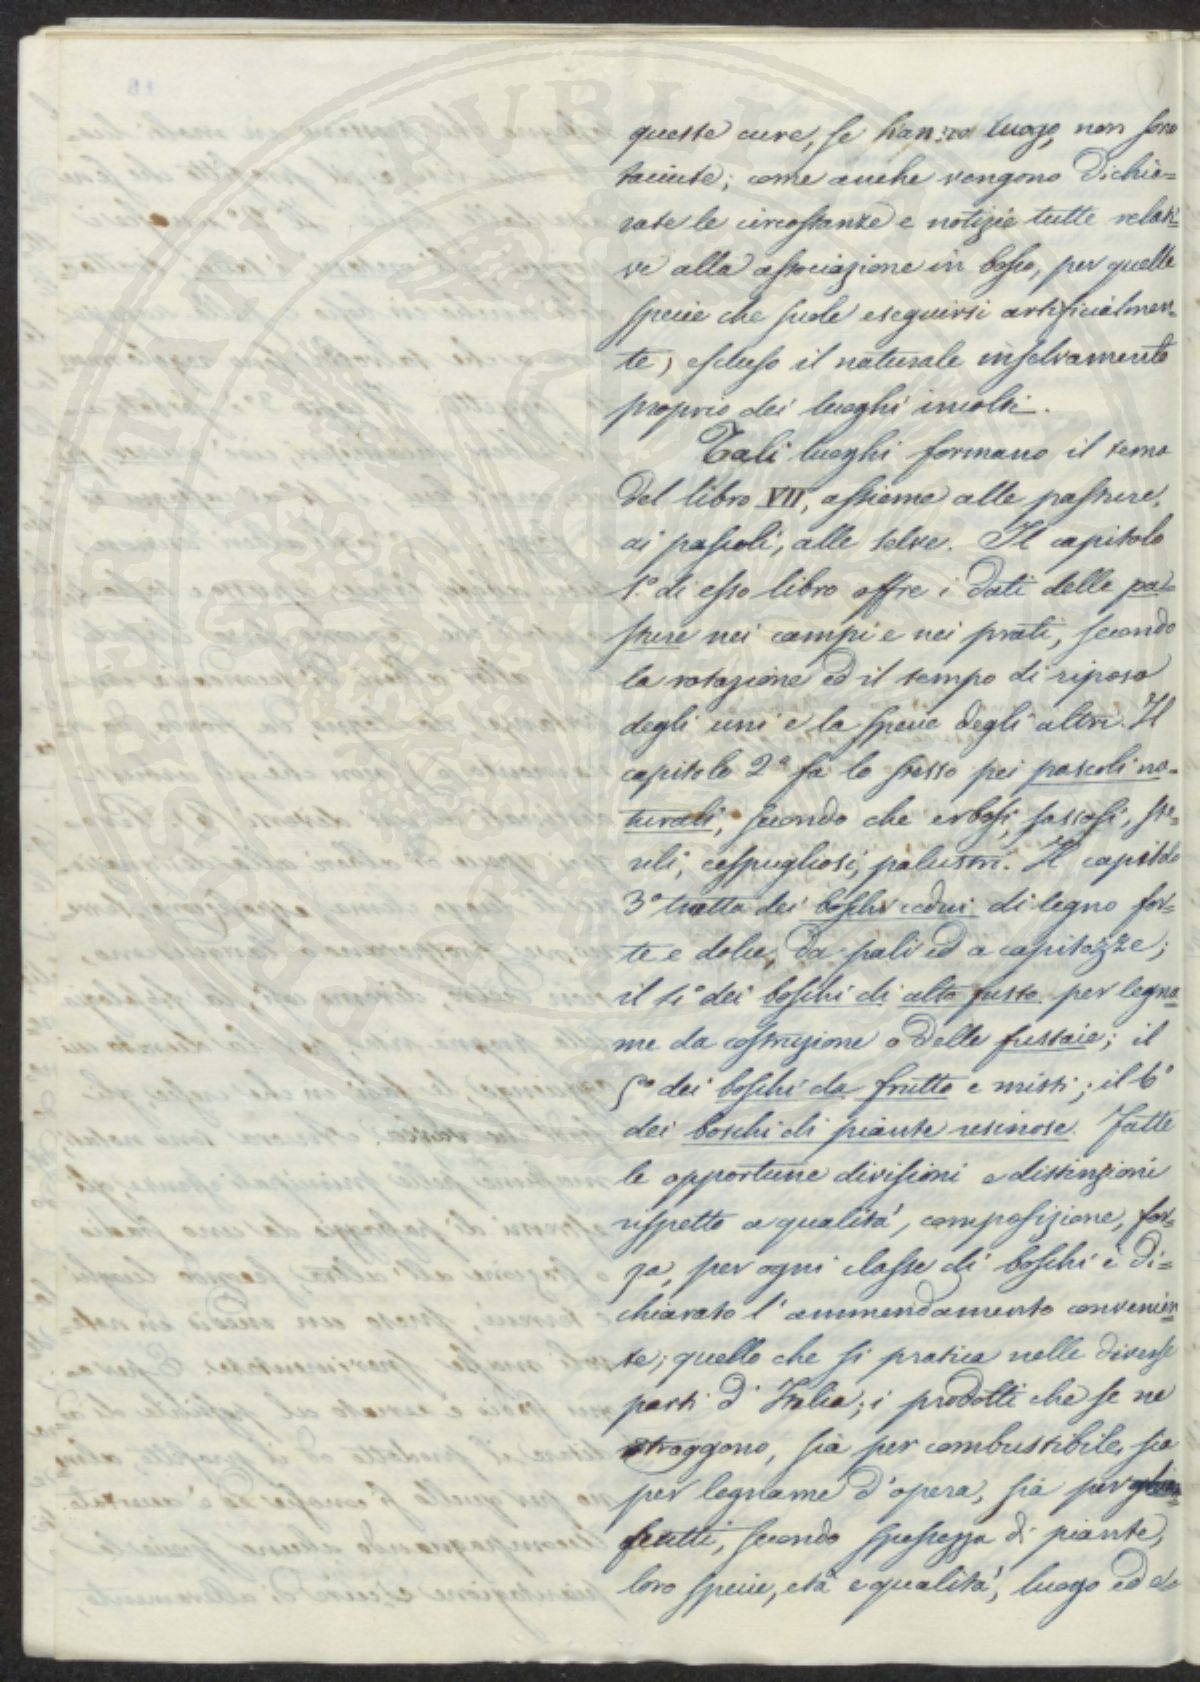 queste cure, se hanno luogo, non sono
taciute; come anche vengono dichia=
rate le circostanze e notizie tutte relati=
ve alla associazione in bosco, per quelle
specie che suole eseguirsi artificialmen=
te, escluso il naturale inselvamento
proprio dei luoghi incolti.
Tali luoghi formano il tema
del libro VII, assieme alle pasture,
ai pascoli, alle selve. Il capitolo
1.° di esso libro offre i dati delle pa=
sture nei campi e nei prati, secondo
la rotazione ed il tempo di riposo
degli uni e la specie degli altri. Il
capitolo 2° fa lo stesso pei pascoli na=
turali, secondo che erbosi, sassosi, ste=
rili, cespugliosi, palustri. Il capitolo
3° tratta dei boschi cedui di legno for=
te e dolce, da pali ed a capitozze;
il 4° dei boschi di alto fusto per legna
me da costruzione o delle fustaie; il
5° dei boschi da frutto e misti; il 6°
dei boschi di piante resinose. Fatte
le opportune divisioni e distinzioni
rispetto a qualità, composizione, for=
za, per ogni classe di boschi è di=
chiarato l'ammendamento convenien
te; quello che si pratica nelle diverse
parti d'Italia; i prodotti che se ne
traggono, sia per combustibile, sia
per legname d'opera, sia per
frutti, secondo spessezza di piante,
loro specie, età e qualità, luogo ed